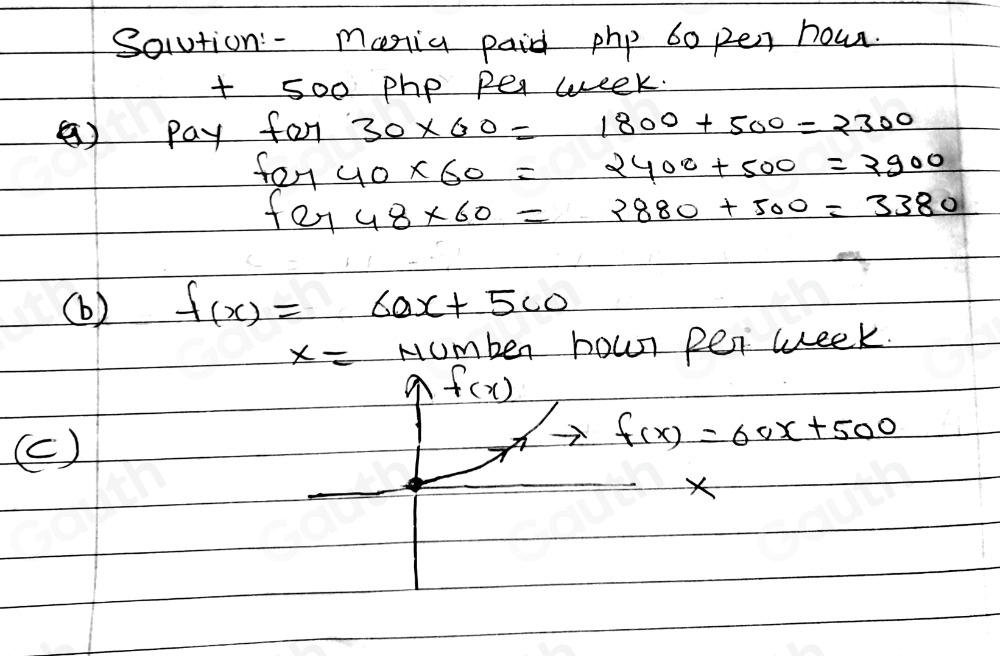 Solution:- Maria paid php 60 per hour.
+ 500 php per week.
a) Pay for 30×60 = 1800 + 500 = 2300
for 40×60 = 2400 + 500 = 2900
for 48×60 = 2880 + 500 = 3380
(b) f(x) = 60x + 500
x = Number hour per week.
f(x)
(c) → f(x) = 60x + 500
x